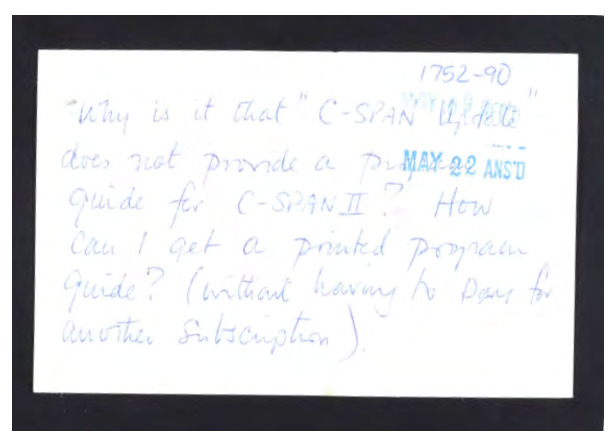 1752-90
"Why is it that "C-SPAN Update"
does not provide a program
MAY 22 ANS'D
guide for C-SPAN II? How
can I get a printed program
guide? (without having to pay for
another subscription).